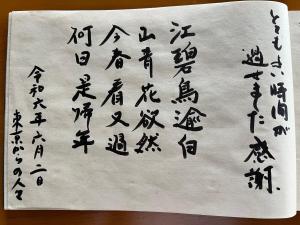 とても よい時間が
過せました 感謝.
江碧鳥逾白
山青花欲然
今春看又過
何日是帰年
令和六年六月二日
東京からの人々